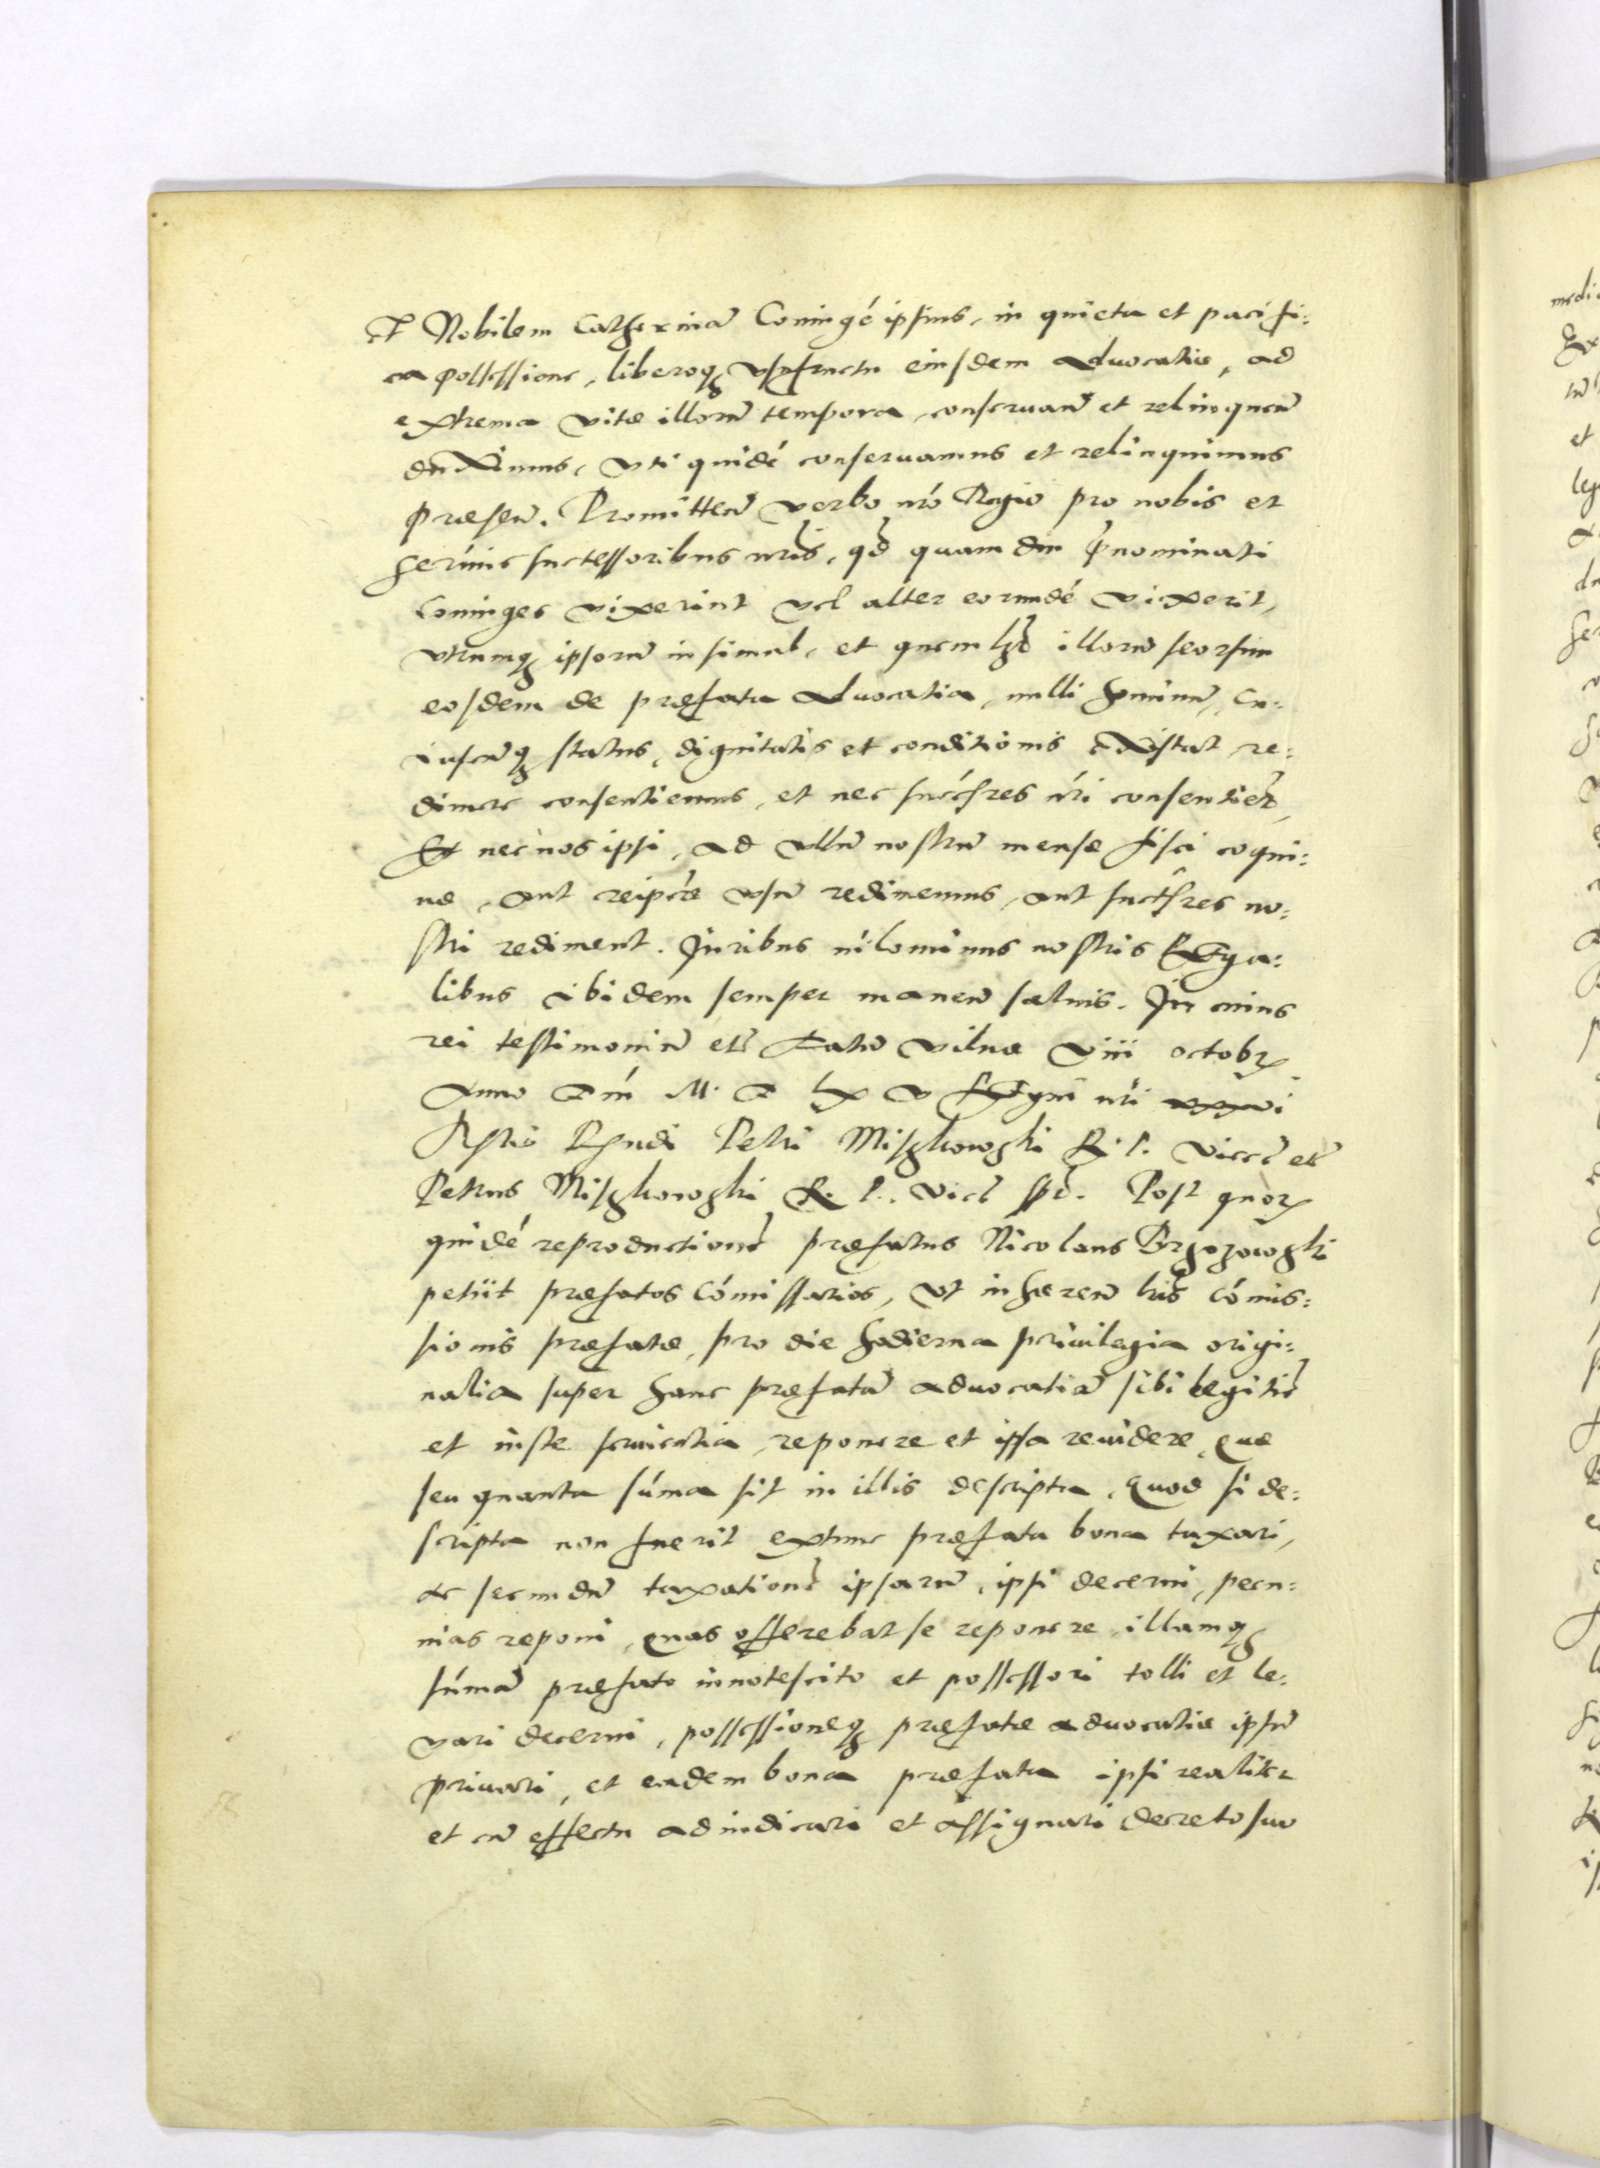 Et Nobilem Catherinā Coniugē ipsius, in quieta et pacifi:
ca possessione, liberoq₃ vsufructu eiusdem Aduocatiæ, ad
extrema vitæ illorū tempora conseruanđ et relinquenđ
duximus, vti quidē conseruamus et relinquimus
præsen̄. Promitten̄ verbo nr̄o Regio pro nobis et
Serēnis successoribus nr̄is, qđ quam diu p̄nominati
Coniuges vixerint vel alter eorundē vixerit,
vtrumq₃ ipsorū insimul, et quemlƺt illorū seorsim
eosdem de præfata Aduocatia, nulli hominū, Cu:
iuscūq₃ status, dignitatis et conditionis existat re:
dimere consentiemus, et nec succēssres nr̄i consentient,
Et nec nos ipsi, ad vllū nostrum mensæ fisci coqui:
næ, aut reipcæ vsū redimemus, aut succ̄ssres no:
stri rediment. Juribus nīlominus nostris Rega:
libus ibidem semper manen̄ saluis. In cuius
rei testimoniū etc̄ Datū Vilnæ viii octobr̄
Anno Dn̄i M. D lx v Regni nr̄i xxxvi
Rl̄tio Rn̄di Petri Miskowski R. P. Vicec̄ etc̄
Petrus Miskowski R. P. Vic̄ sst. Post quor̄
quidē reproductionē præfatus Nicolaus Brzozowski
petiit præfatos Cōmissarios, vt inhæren̄ lris Cōmis:
sionis præfatæ, pro die hodierna priuilegia origi:
nalia super hanc præfatā aduocatiā sibi legitiē
et iuste seruientia, reponere et ipsa reuidere, quæ
seu quanta sūma sit in illis descripta, Quod si de:
scripta non fuerit extunc præfata bona taxari,
ac secundū taxationē ipsarū, ipsi decerni, pecu:
nias reponi, quas offerebat se reponere, illamq₃
sūmā præfato innotescito et possessori tolli et le:
vari decerni, possessioneq₃ præfatæ aduocatiæ ipsū
priuari, et eadem bona præfata ipsi realiter
et cū effectu adiudicari et assignari decreto suo